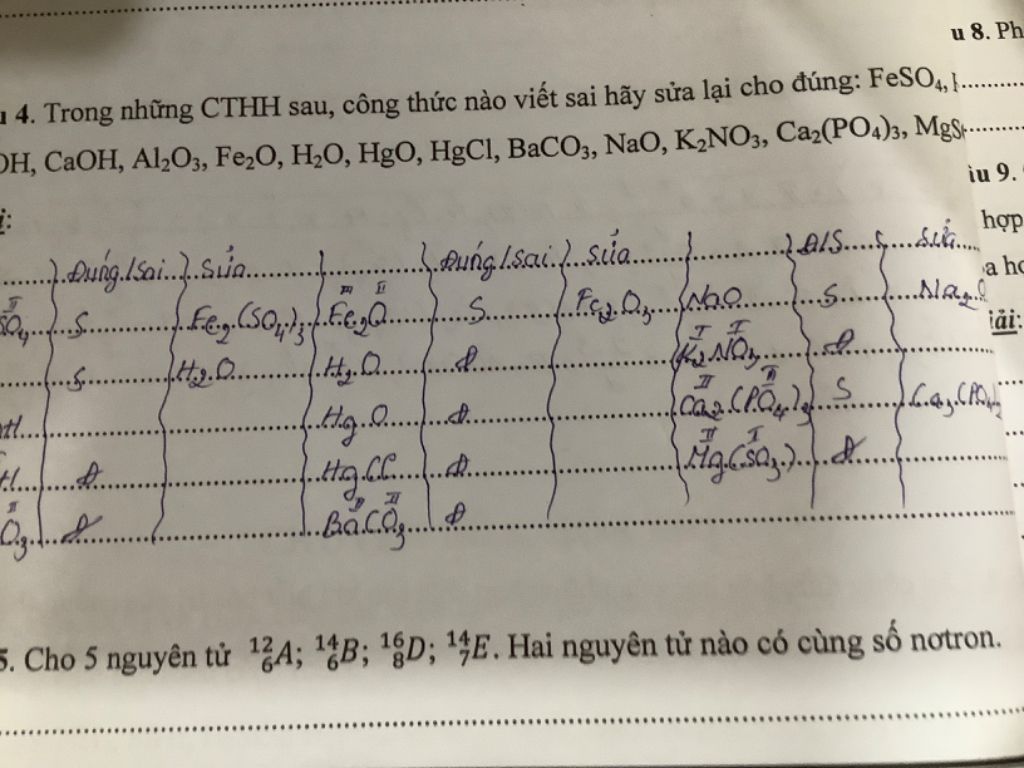 u 8. Ph
4. Trong những CTHH sau, công thức nào viết sai hãy sửa lại cho đúng: FeSO₄,
OH, CaOH, Al₂O₃, Fe₂O, H₂O, HgO, HgCl, BaCO₃, NaO, K₂NO₃, Ca₂(PO₄)₃, MgS
iu 9.
i:
hợp
Đúng/Sai Sửa Đúng/Sai Sửa Đ/S Sửa
a
SO₄ II S Fe₂(SO₄)₃ Fe₂O III II S Fe₂O₃ NaO S Na₂
iải:
S H₂O H₂O Đ K₂NO₃ I I Đ
H HgO Đ Ca₂(PO₄)₃ II III S Ca₃(PO₄)₂
H Đ HgCl Đ Mg(SO₃) II I Đ
O₃ II Đ BaCO₃ II II Đ
5. Cho 5 nguyên tử ¹²₆A; ¹⁴₆B; ¹⁶₈D; ¹⁴₇E. Hai nguyên tử nào có cùng số nơtron.